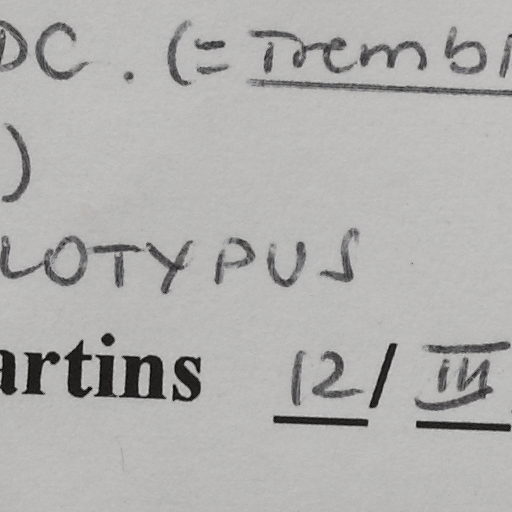 DC. (= Trembl
)
LOTYPUS
artins 12/III